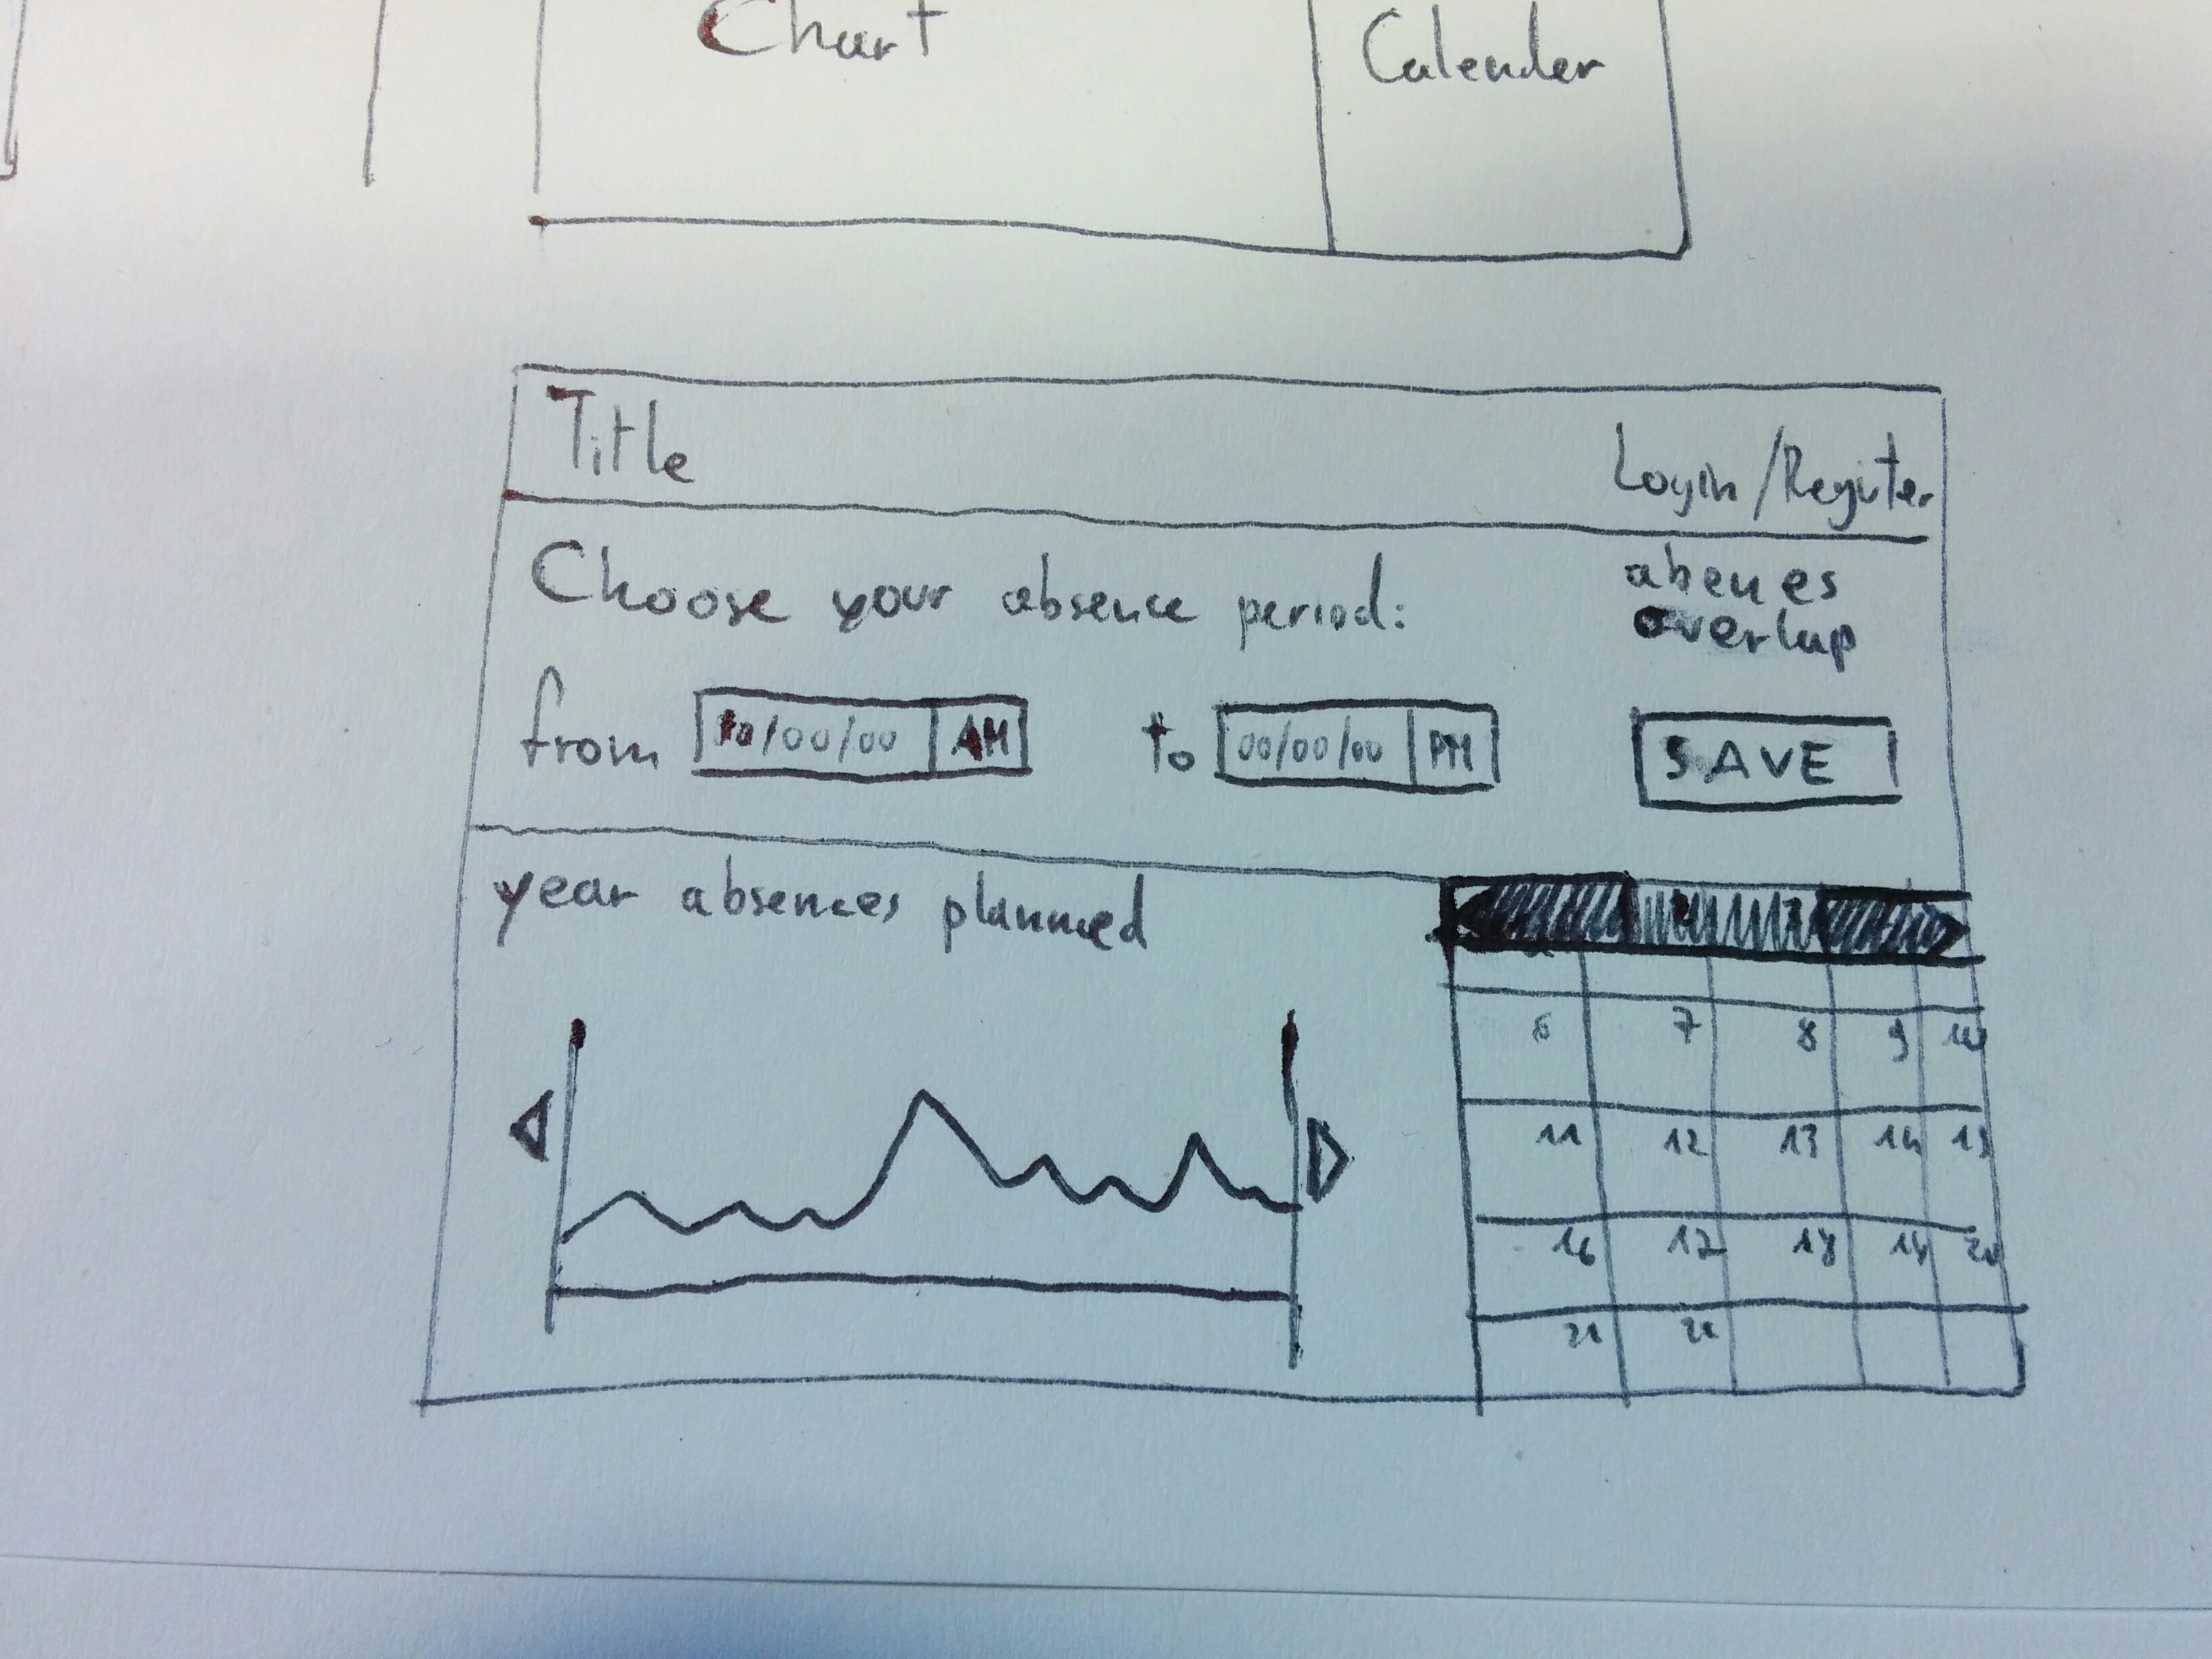 Chart
Calender
Title
Login/Register
Choose your absence period:
abenes
overlap
from 00/00/00 AM to 00/00/00 PM SAVE
year absences planned
6 7 8 9 10
11 12 13 14 15
16 17 18 19 20
21 22